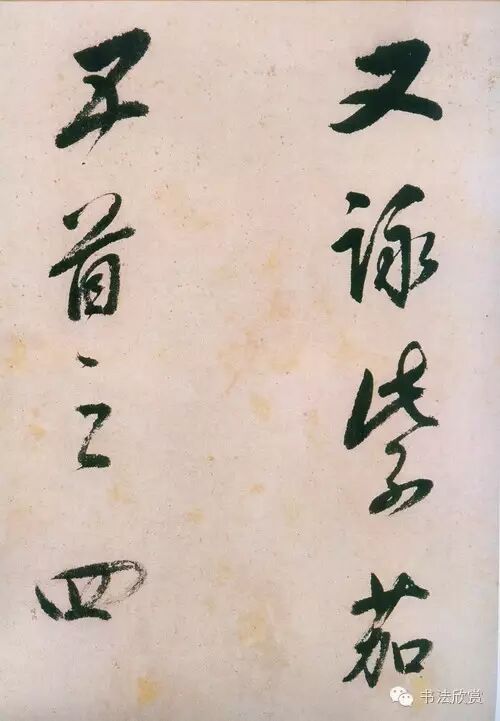 又詠紫茄
五首之四
书法欣赏